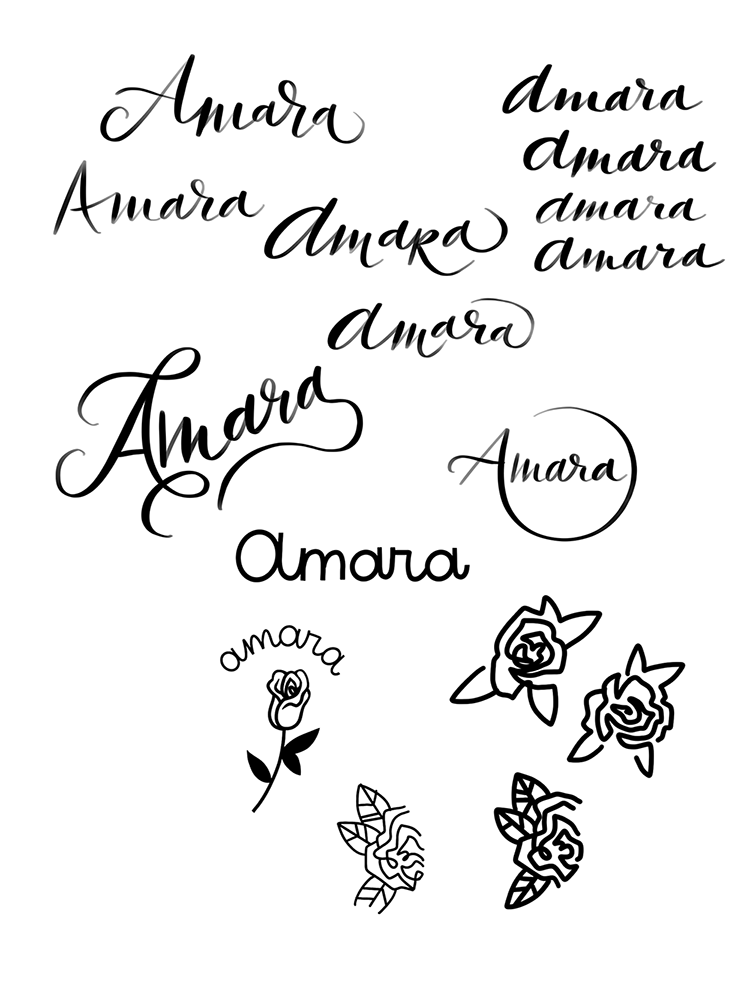 Amara
amara
amara
Amara
amara
amaRa
amara
amara
Amara
Amara
amara
amara